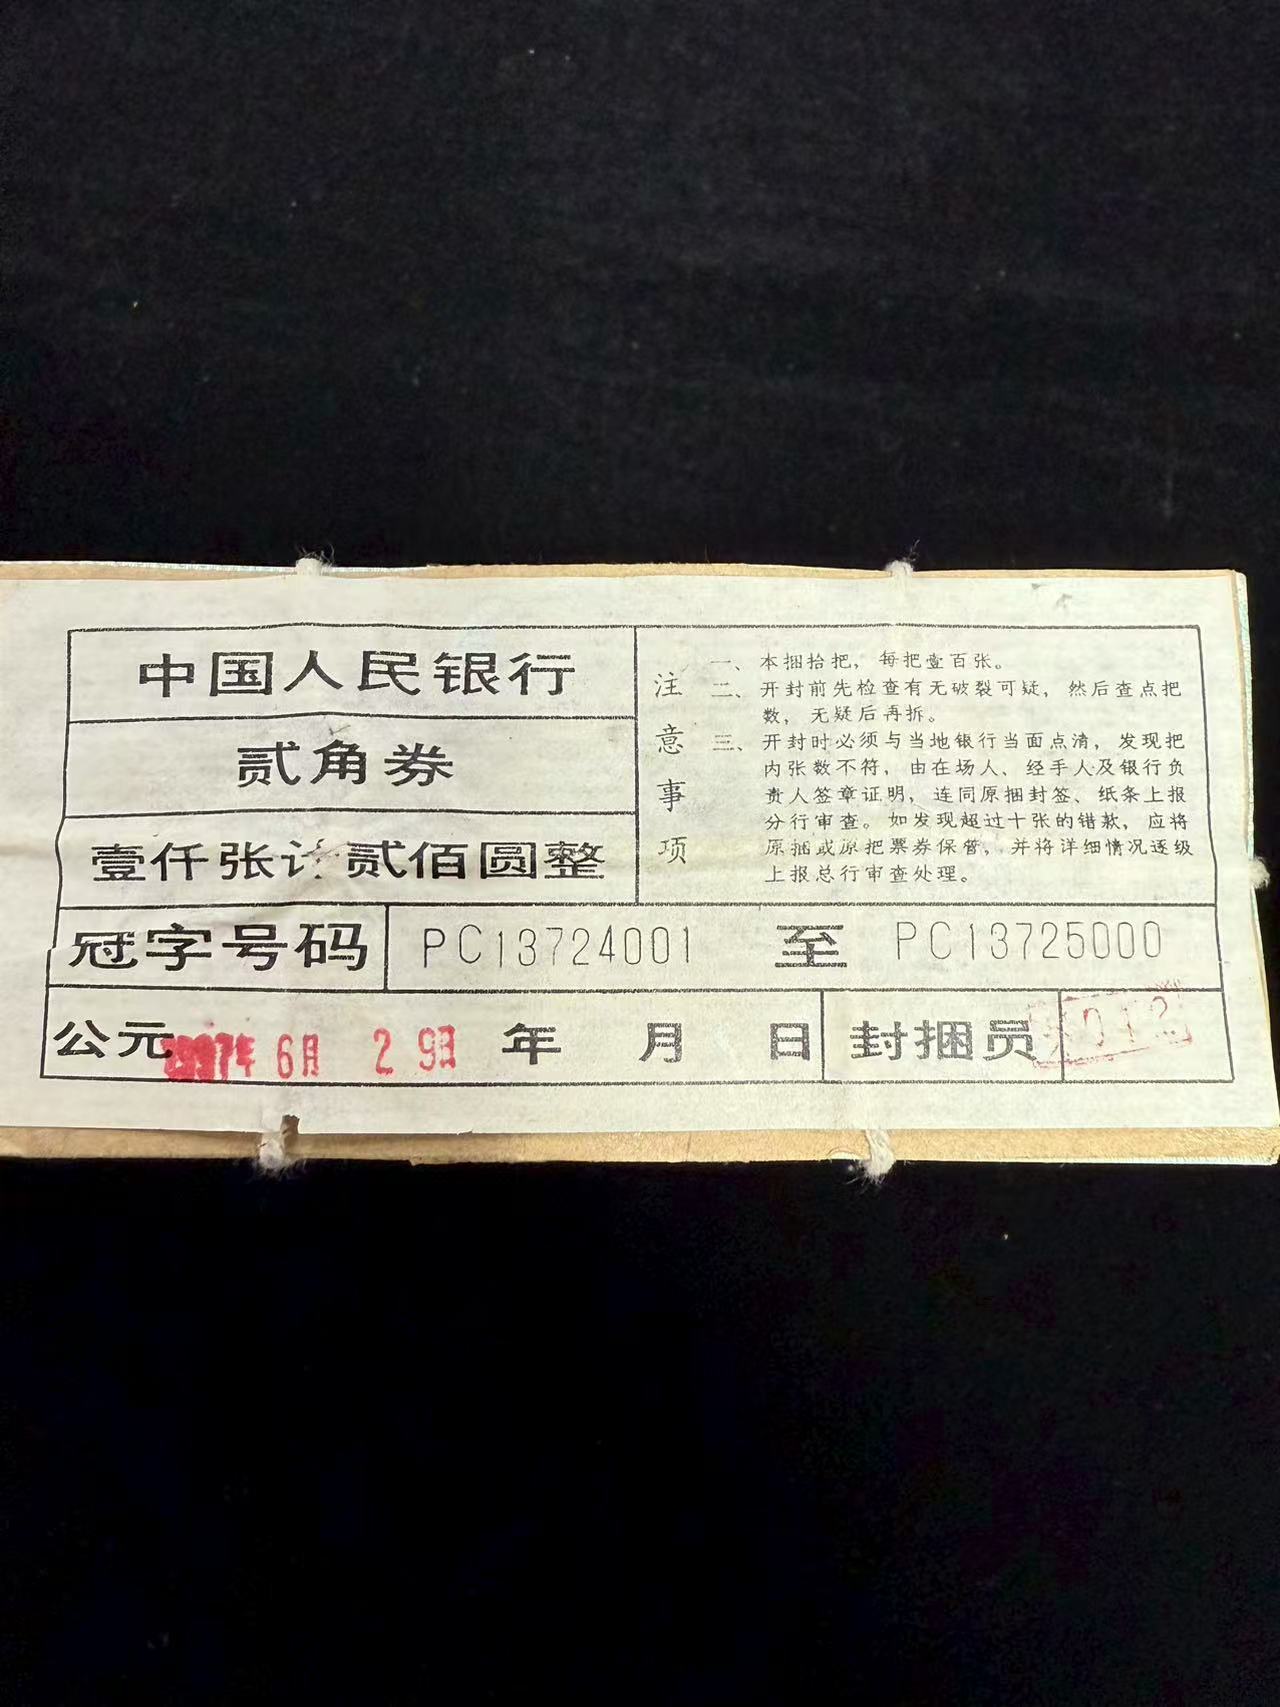 中国人民银行
贰角券
壹仟张计贰佰圆整
注意事项
一、本捆拾把，每把壹百张。
二、开封前先检查有无破裂可疑，然后查点把
数，无疑后再拆。
三、开封时必须与当地银行当面点清，发现把
内张数不符，由在场人、经手人及银行负
责人签章证明，连同原捆封签、纸条上报
分行审查。如发现超过十张的错款，应将
原捆或原把票券保管，并将详细情况逐级
上报总行审查处理。
冠字号码 PC13724001 至 PC13725000
公元 年 6月 29日 年 月 日 封捆员